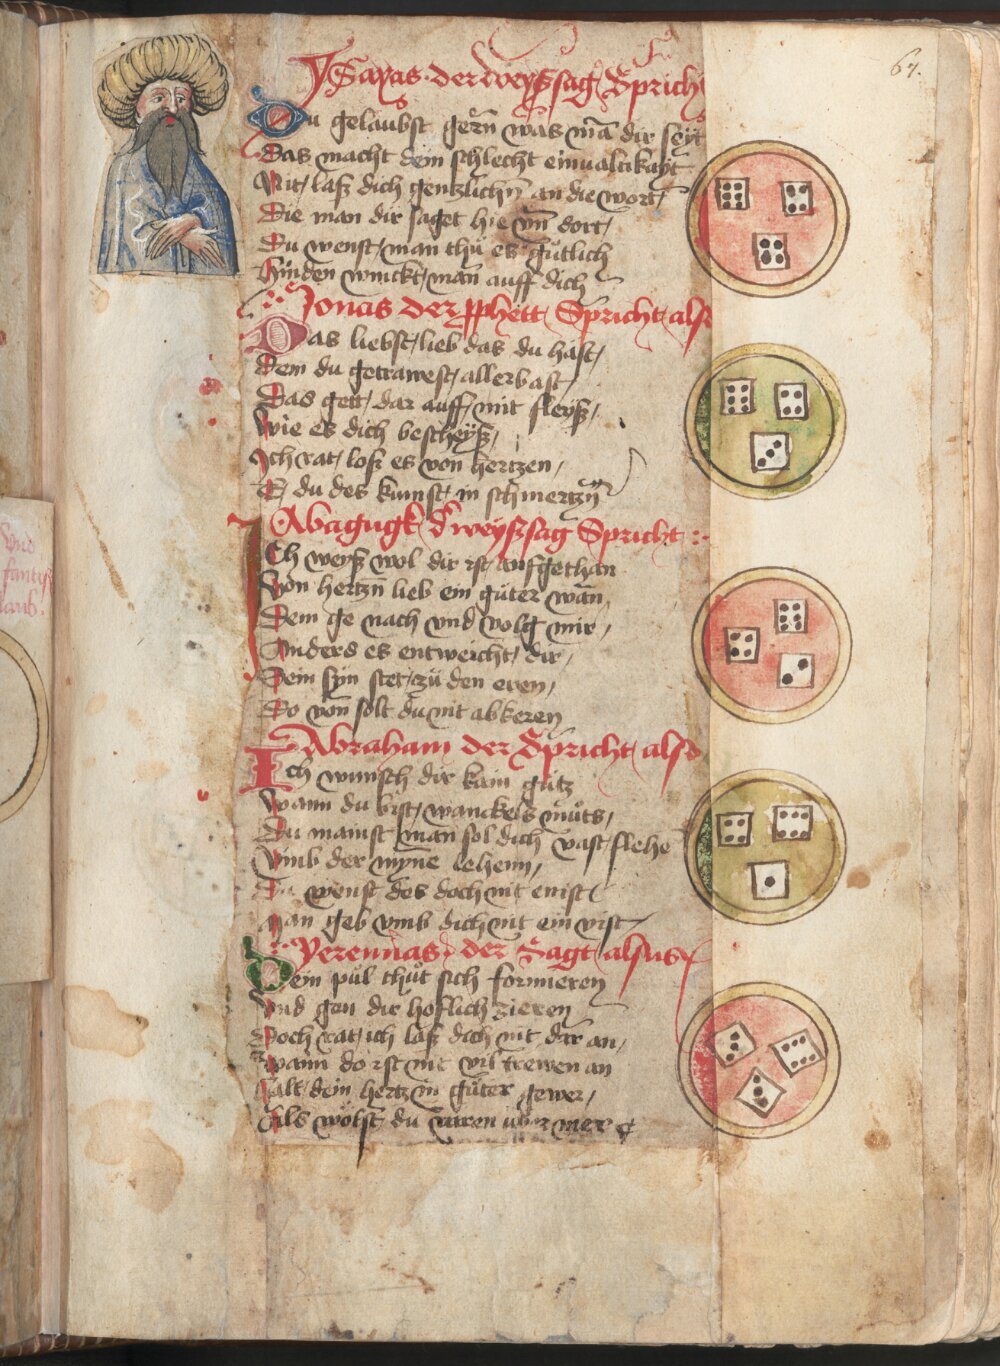 67.
Ysayas der weyssag Spricht
Du gelaubst gern was mā dir seyt
Das macht dein schlecht einualtikayt
Nit laß dich gentzlichn̄ an die wort
Die man dir saget hie vn̄ dort
Du wenst man thü es gütlich
Hinden winckt man auff dich
Jonas der pphett Spricht also
Das liebst lieb das du hast
Dem du getrawest aller bast
Das gett dar auff mit fleyß
Wie es dich bescheyß
Ich rat loß es von hertzen
E du des kumst in schmertzn̄
Abagugk d' weyssag Spricht :
Ich weyß wol dir ist aufgethan
Von hertzn̄ lieb ein güter wan
Dem ge nach vnd volg mir
Anders es entweicht dir
Dein syn stet zü den eren
Do von solt du nit abkeren
Abraham der Spricht also
Ich wünsch dir kain gütz
Wann du bist wanckels müts
Du mainst man sol dich vast flehē
Vmb der myne lehenn
Du wenst des doch nit enist
Man geb vmb dich nit ein mist
der Sagt alsus
Dein pül thüt sich formieren
Vnd gen dir hoflich zieren
Doch rat ich laß dich nit dar an
Wann do ist nit vil trewen an
Halt dein hertz in güter gewer
Als wölst du varen über mer